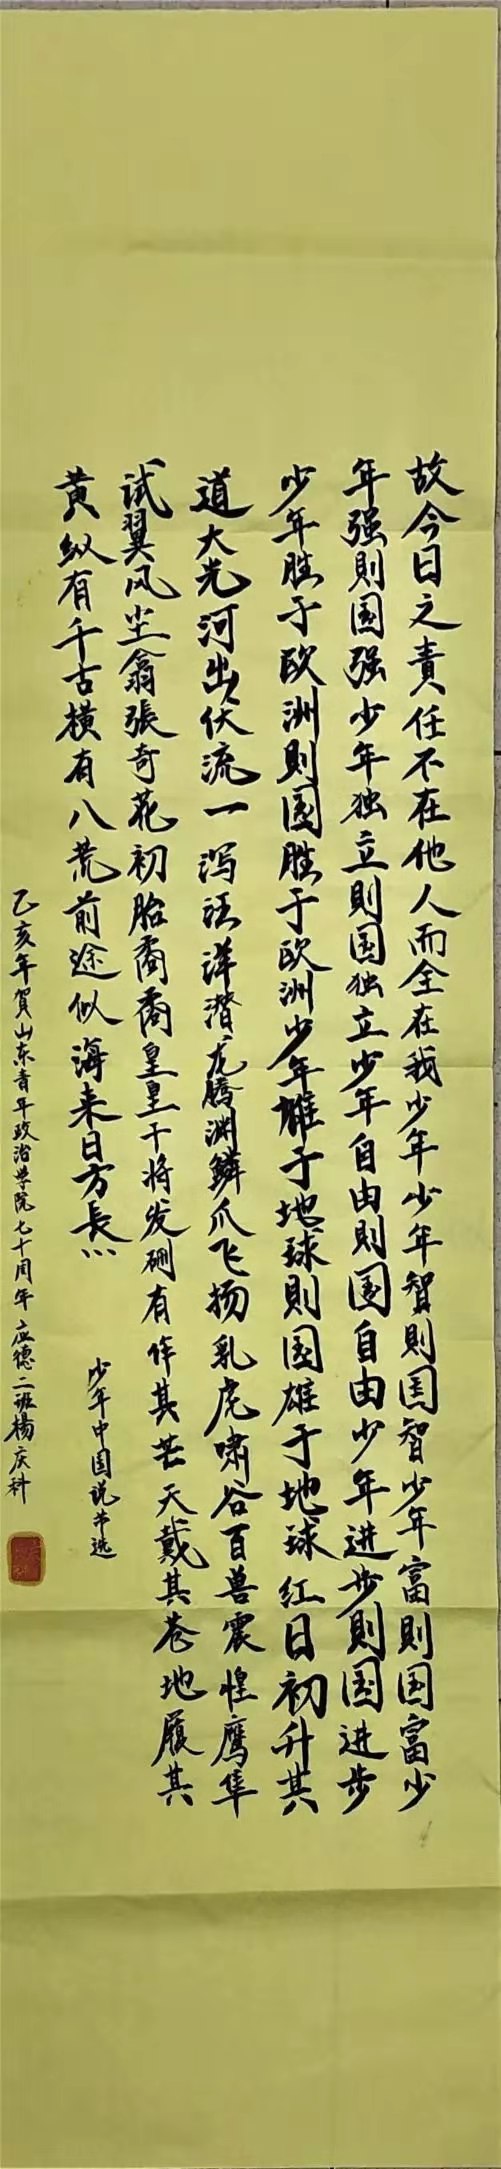 故今日之責任不在他人而全在我少年少年智則国智少年富則国富少
年强則国强少年独立則国独立少年自由則国自由少年进步則国进步
少年胜于欧洲则國胜于欧洲少年雄于地球則国雄于地球红日初升其
道大光河出伏流一泻汪洋潜龙腾渊鳞爪飞扬乳虎啸谷百兽震惶鹰隼
试翼风尘翕張奇花初胎矞矞皇皇干将发硎有作其芒天戴其苍地履其
黄纵有千古横有八荒前途似海来日方長
少年中国说节选
乙亥年賀山东青年政治学院七十周年 应德二班杨庆科